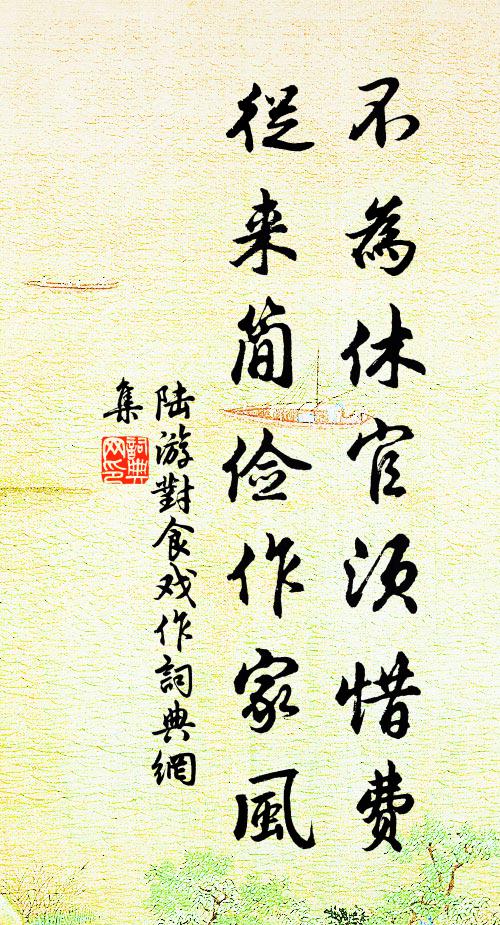 不為休官須惜费
從来简俭作家風
陆游對食戏作詞典網
集
詞典
网印